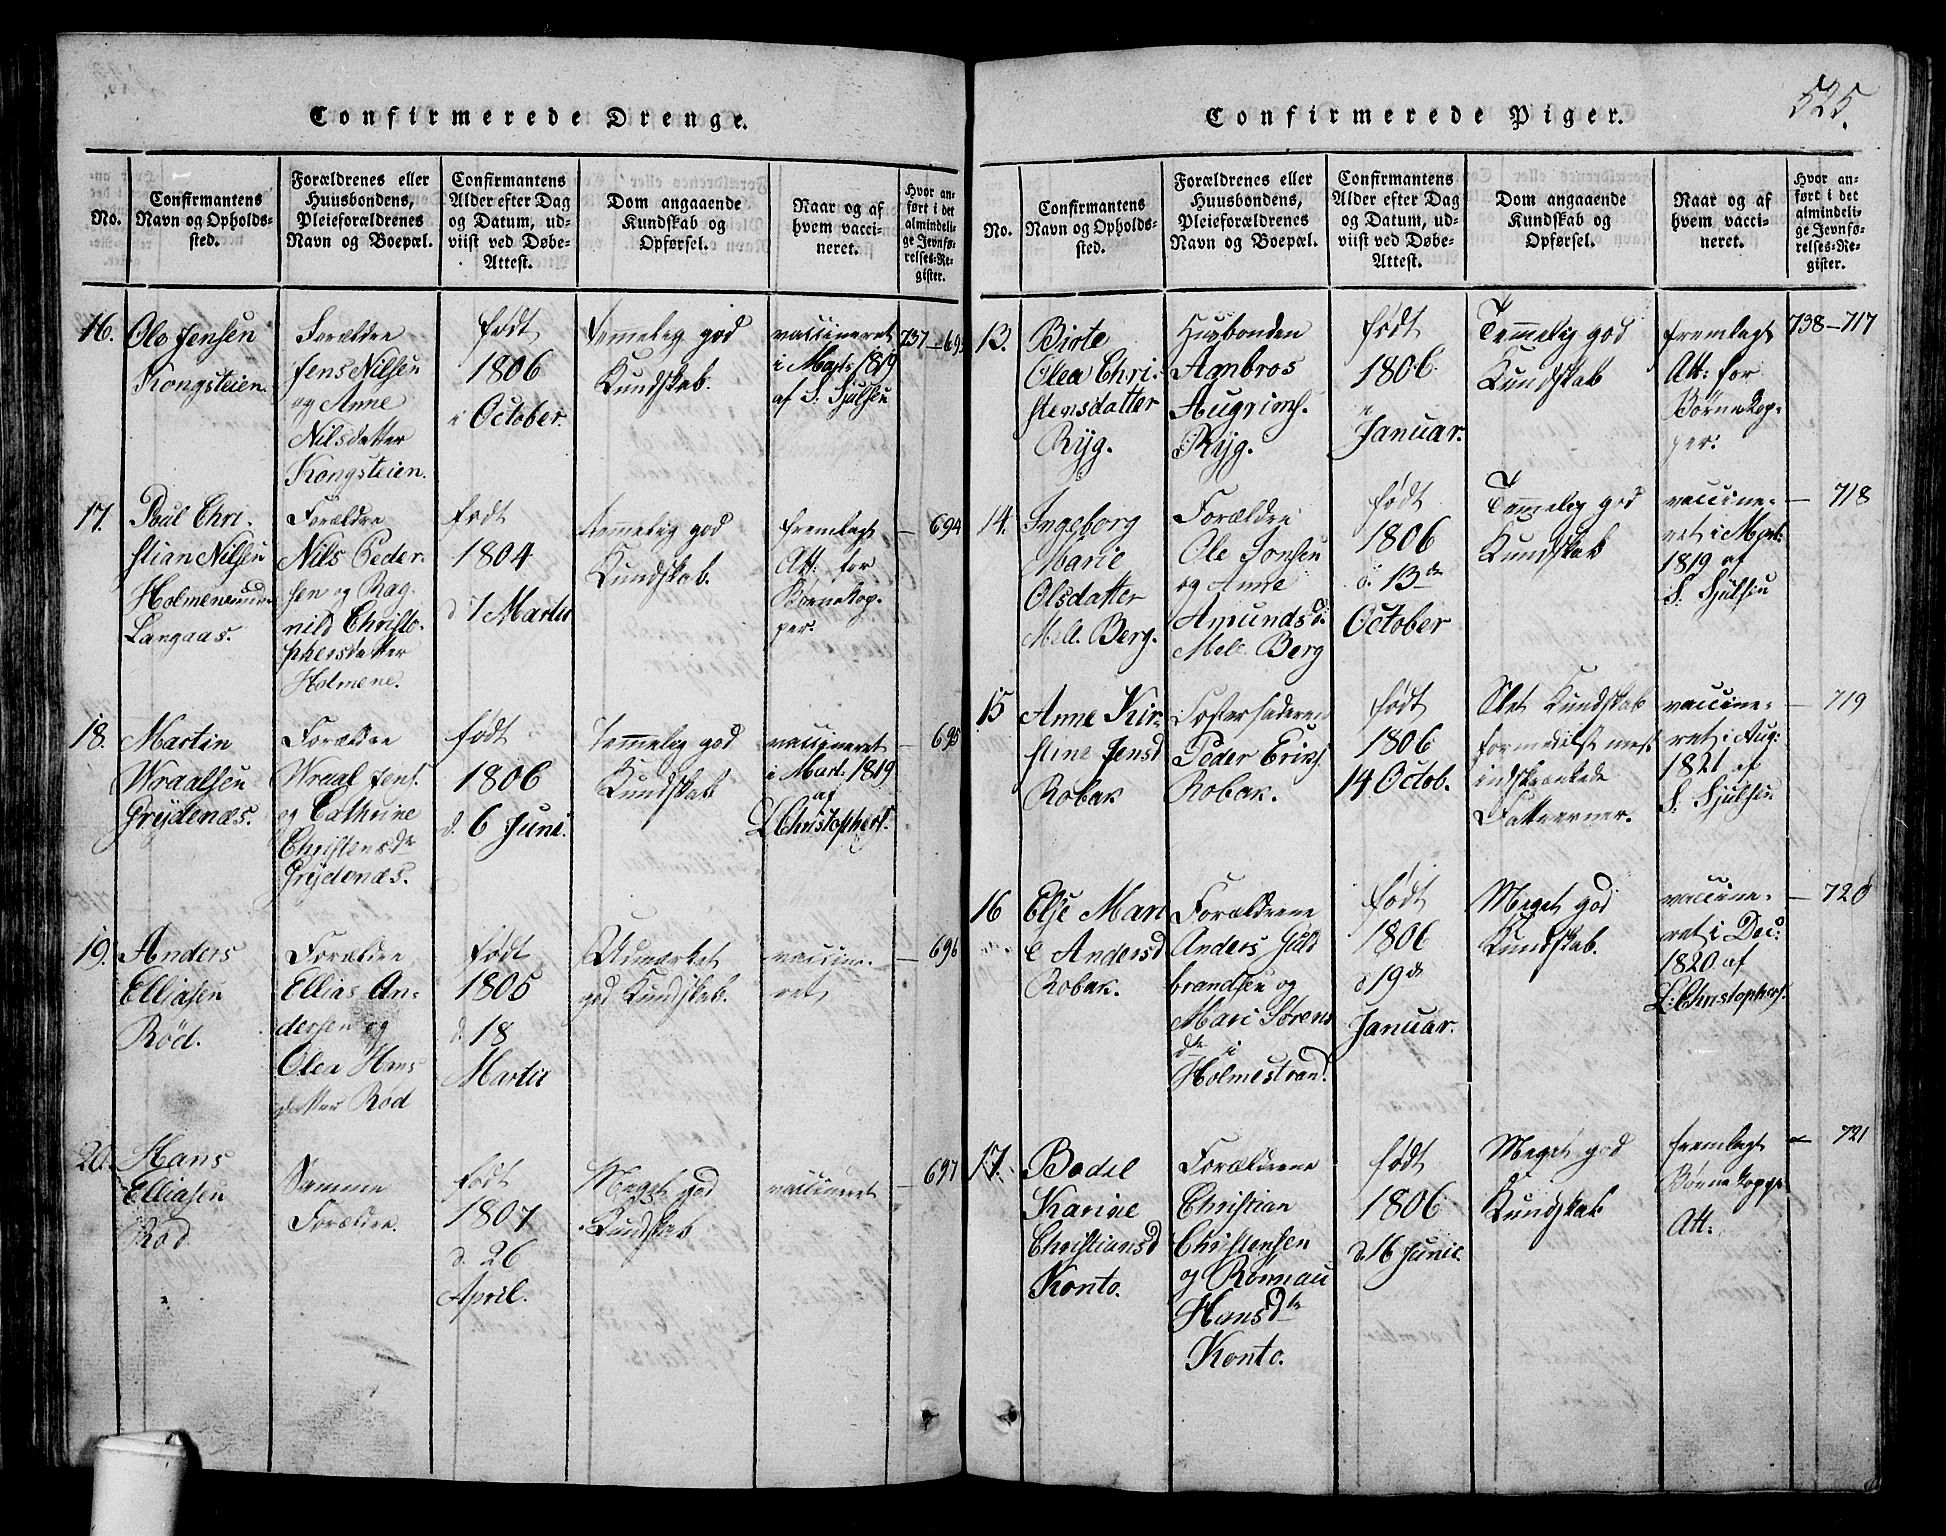 525.
Confirmerede Drenge.
No.
Confirmantens
Navn og Opholds-
sted.
Forældrenes eller
Huusbondens,
Pleieforældrenes
Navn og Boepæl.
Confirmantens
Alder efter Dag
og Datum, ud-
viist ved Døbe-
Attest.
Dom angaaende
Kundskab og
Opførsel.
Naar og af
hvem vacci-
neret.
Hvor an-
ført i det
almindeli-
ge Jevnfø-
relses-Re-
gister.
16.
Ole Jensen
Kongsteien.
Forældre
Jens Nilsen
og Anne
Nilsdatter
Kongsteien.
født
1806
i October.
Temmelig god
Kundskab.
vaccineret
i Marts 1819
af S. Sjulsen
737-693
17.
Poul Chri-
stian Nilsen
Langaas.
Forældre
Nils Peder-
sen og Rag-
nild Christo-
phersdatter
Holmene.
født
1804
d 7 Martii
temmelig god
Kundskab.
fremlagt
Att: for
Børnekop-
per.
- 694
18.
Martin
Wraalsen
Grydenæs.
Forældre
Wraal Jens.
og Cathrine
Christensdr
Grydenæs.
født
1806
d. 6 Juni.
Temmelig god
Kundskab
vaccineret
i Mart. 1819
af
L Christophers.
- 695
19.
Anders
Elliasen
Rød.
Forældre
Ellias An-
dersen og
Olea Hans
datter Rød
født
1805
d. 18
Martii
Udmærket
god Kundskab.
vaccine-
ret
- 696
20.
Hans
Elliasen
Rød
Samme
Forældre.
født
1807
d. 26
April.
Meget god
Kundskab
vaccineret
- 697
Confirmerede Piger.
No.
Confirmantens
Navn og Opholds-
sted.
Forældrenes eller
Huusbondens,
Pleieforældrenes
Navn og Boepæl.
Confirmantens
Alder efter Dag
og Datum, ud-
viist ved Døbe-
Attest.
Dom angaaende
Kundskab og
Opførsel.
Naar og af
hvem vacci-
neret.
Hvor an-
ført i det
almindeli-
ge Jevnfø-
relses-Re-
gister.
13.
Birte
Olea Chri-
stensdatter
Ryg.
Husbonden
Ambros
Augrims.
Ryg.
født
1806
i
Januar.
Temmelig god
Kundskab
fremlagt
Att: for
Børnekop-
per.
738-717
14.
Ingeborg
Marie
Olsdatter
Mell. Berg.
Forældre
Ole Jonsen
og Anne
Amundsd.
Mell. Berg
født
1806
d: 13de
October
Temmelig god
Kundskab
vaccine-
ret i Mart.
1819 af
S. Sjulsen
- 718
15
Anne Kir-
stine Jensd
Robak
Fosterfaderen
Peder Eriks.
Robak.
født
1806
14 Octob.
Slet Kundskab
formedelst mest
indskrænkede
Fatteevner.
vaccine-
ret i Aug:
1821 af
S. Sjulsen
- 719
16
Elje Mari
e Andersd
Robak.
Forældrene
Anders Guld
brandsen og
Mari Sørens
dtr i
Holmestrand.
født
1806
d 19de
Januar.
Meget god
Kundskab.
vaccine-
ret i Dec:
1820 af
L: Christophers.
- 720
17.
Bodil
Karine
Christiansd
Konto.
Forældrene
Christian
Christensen
og Rønnau
Hansdtr
Konto.
født
1806
d. 16 Junii.
Meget god
Kundskab
fremlagt
Børnekoppe
Att:
- 721